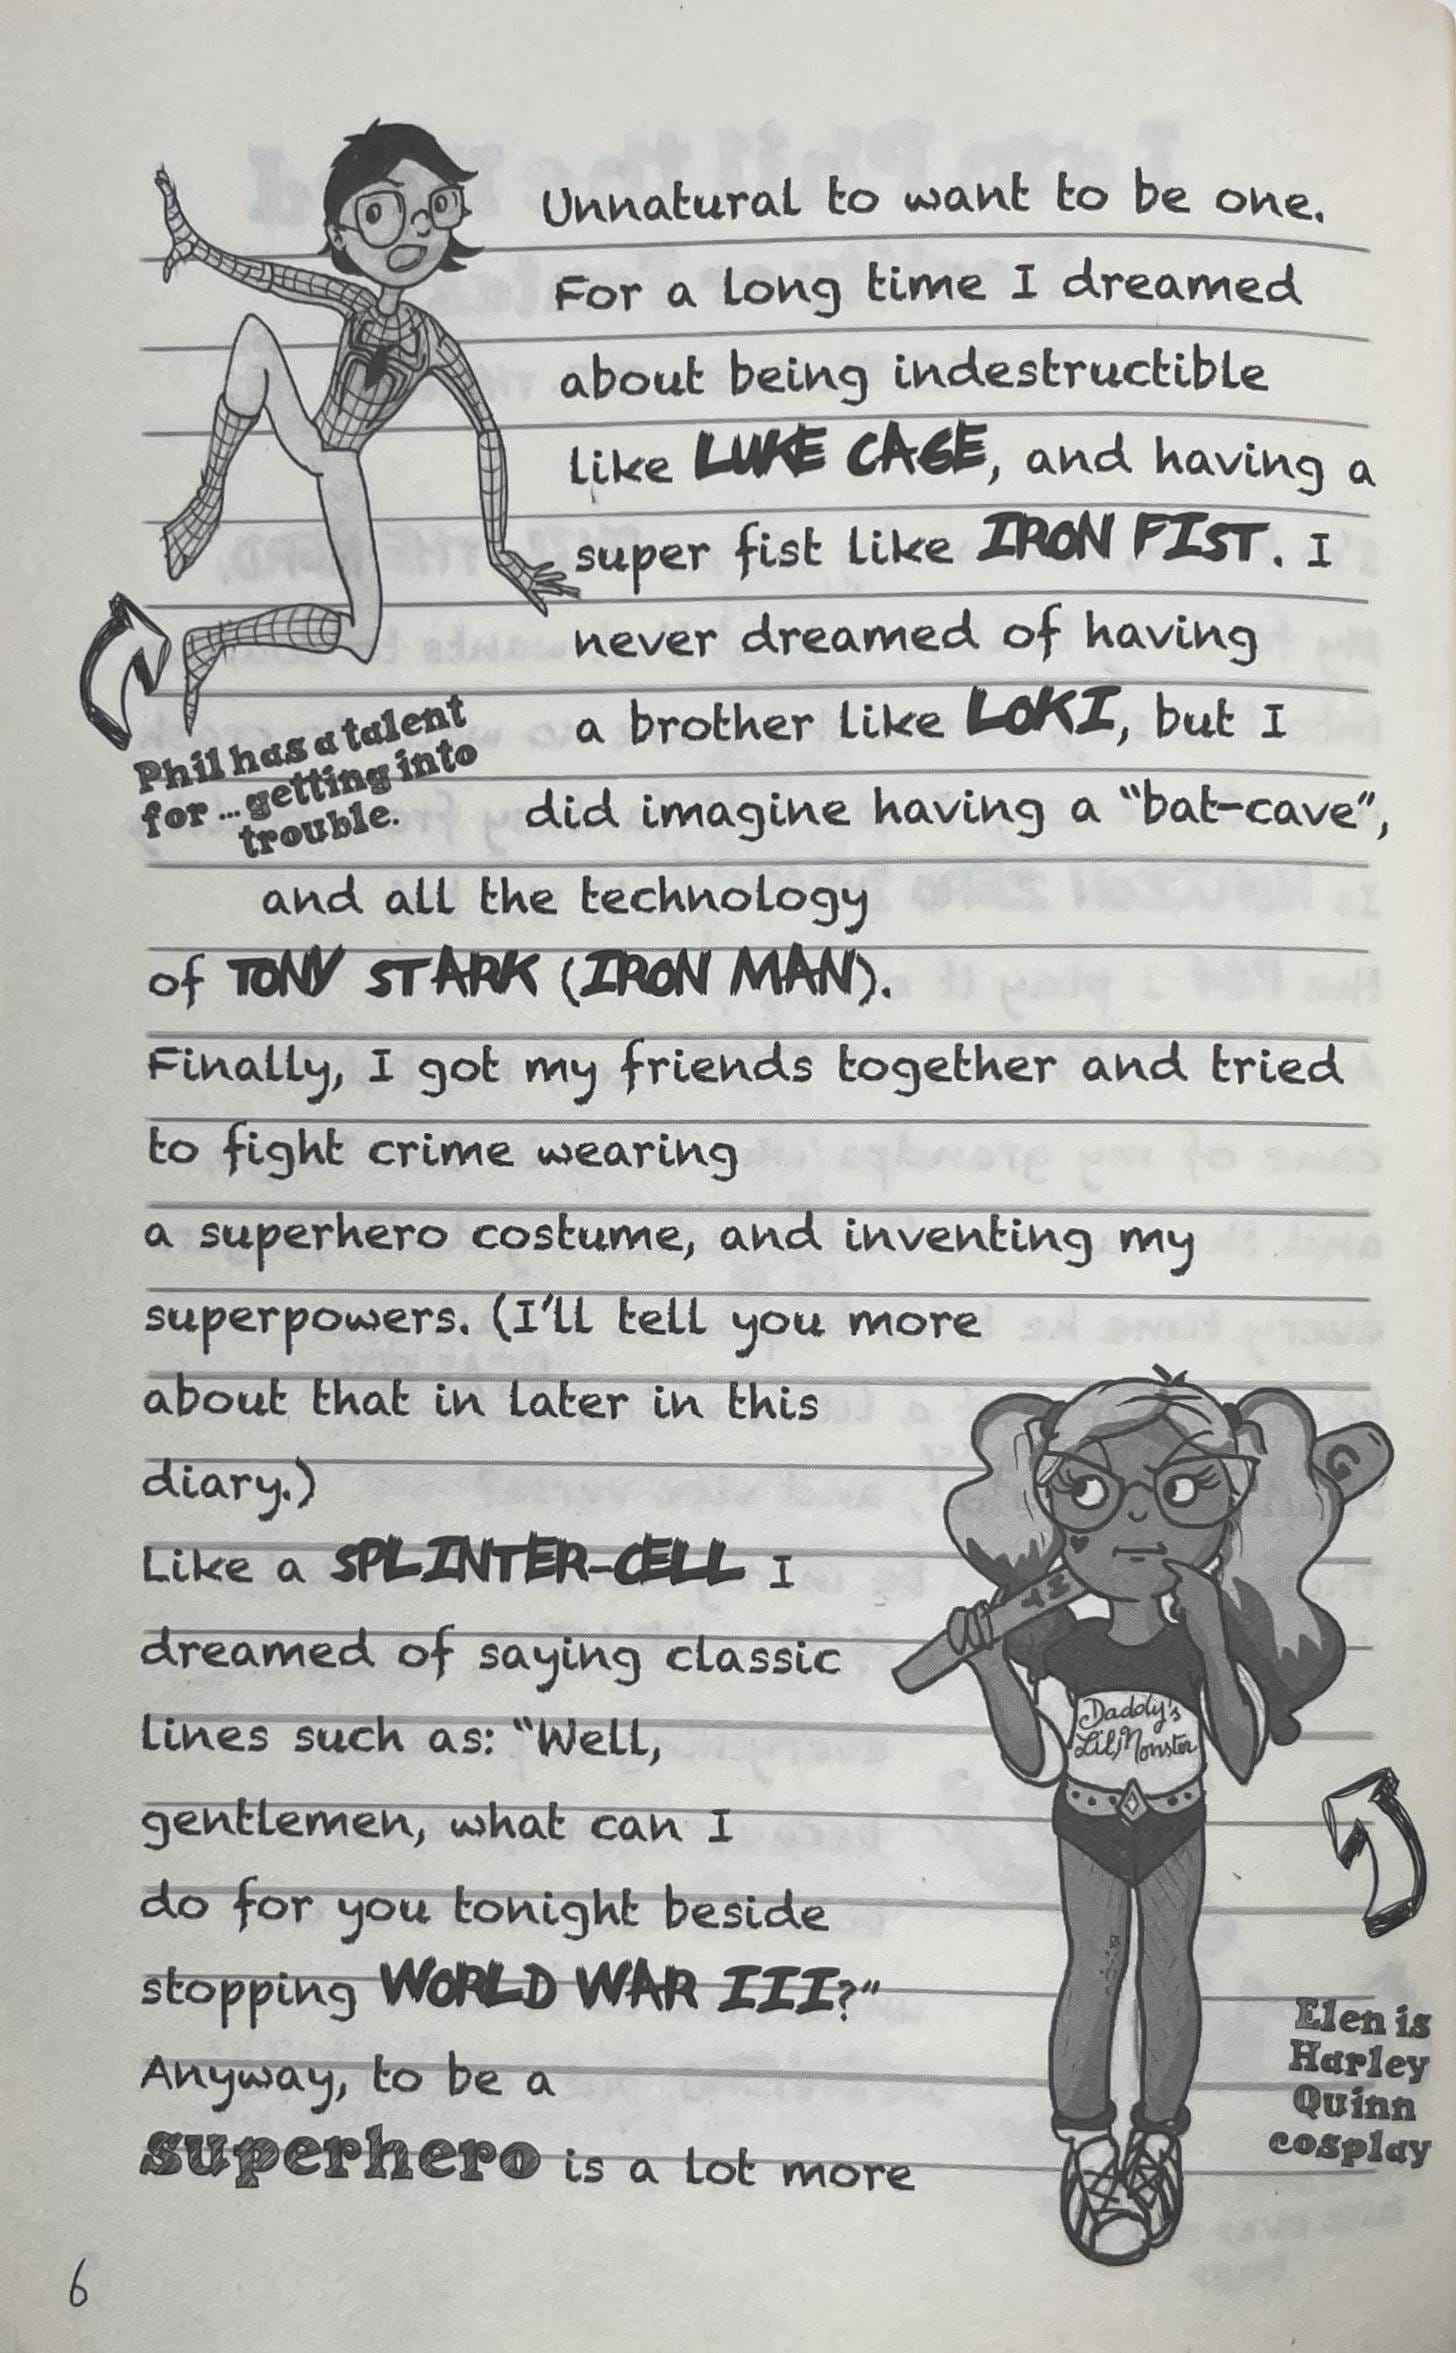 Unnatural to want to be one.
For a long time I dreamed
about being indestructible
like LUKE CAGE, and having a
super fist like IRON FIST. I
never dreamed of having
a brother like LOKI, but I
did imagine having a “bat-cave”,
and all the technology
of TONY STARK (IRON MAN).
Phil has a talent
for ... getting into
trouble.
Finally, I got my friends together and tried
to fight crime wearing
a superhero costume, and inventing my
superpowers. (I'll tell you more
about that in later in this
diary.)
Like a SPLINTER-CELL I
dreamed of saying classic
lines such as: “Well,
gentlemen, what can I
do for you tonight beside
stopping WORLD WAR III?”
Anyway, to be a
superhero is a lot more
Daddy's
Lil Monster
Elen is
Harley
Quinn
cosplay
6